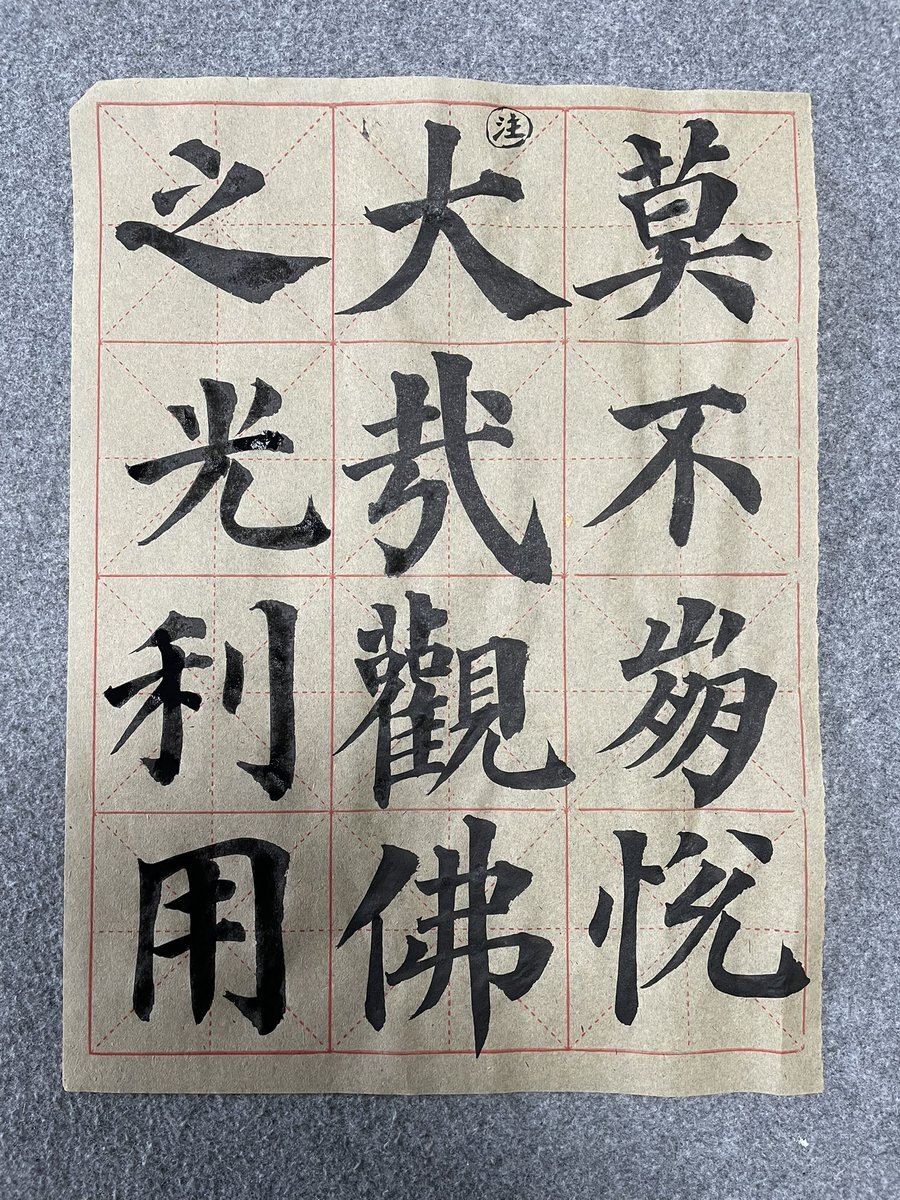 莫不崩悅
大哉觀佛
之光利用
注